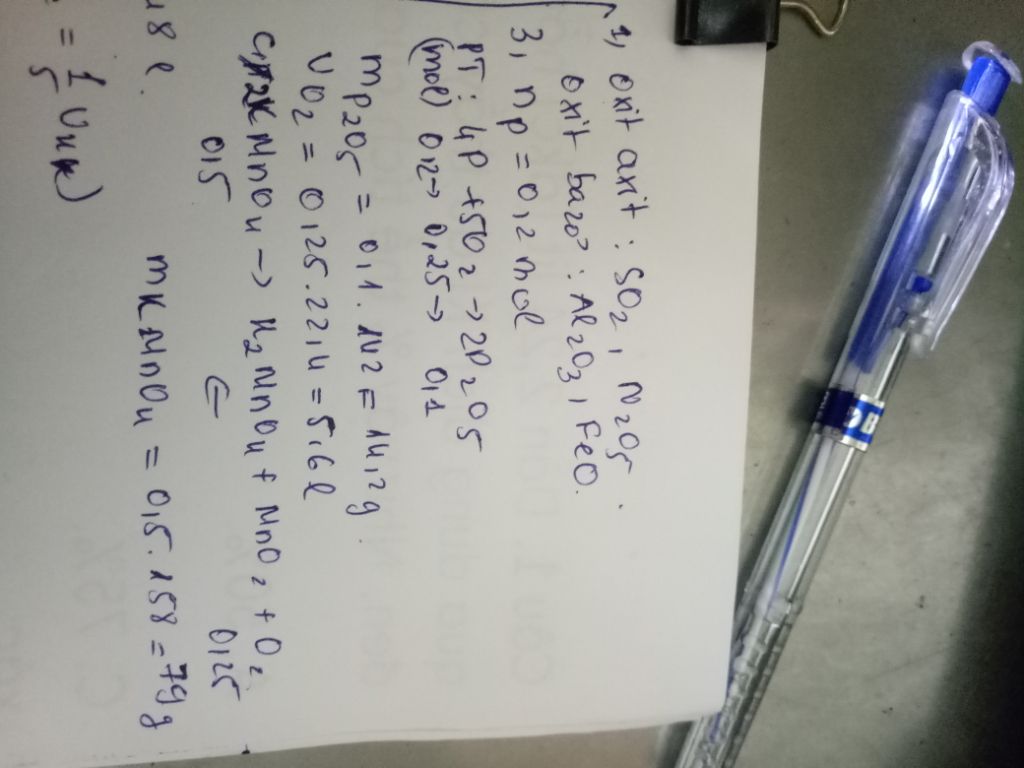 1, oxit axit : SO2, N2O5.
oxit bazơ : Al2O3, FeO.
3, nP = 0,2 mol
PT : 4P + 5O2 → 2P2O5
(mol) 0,2 → 0,25 → 0,1
mP2O5 = 0,1 . 142 = 14,2g
VO2 = 0,25 . 22,4 = 5,6l
2KMnO4 → K2MnO4 + MnO2 + O2
0,5 ⇐ 0,25
mKMnO4 = 0,5 . 158 = 79g
48 l.
= 1/5 Vkk)